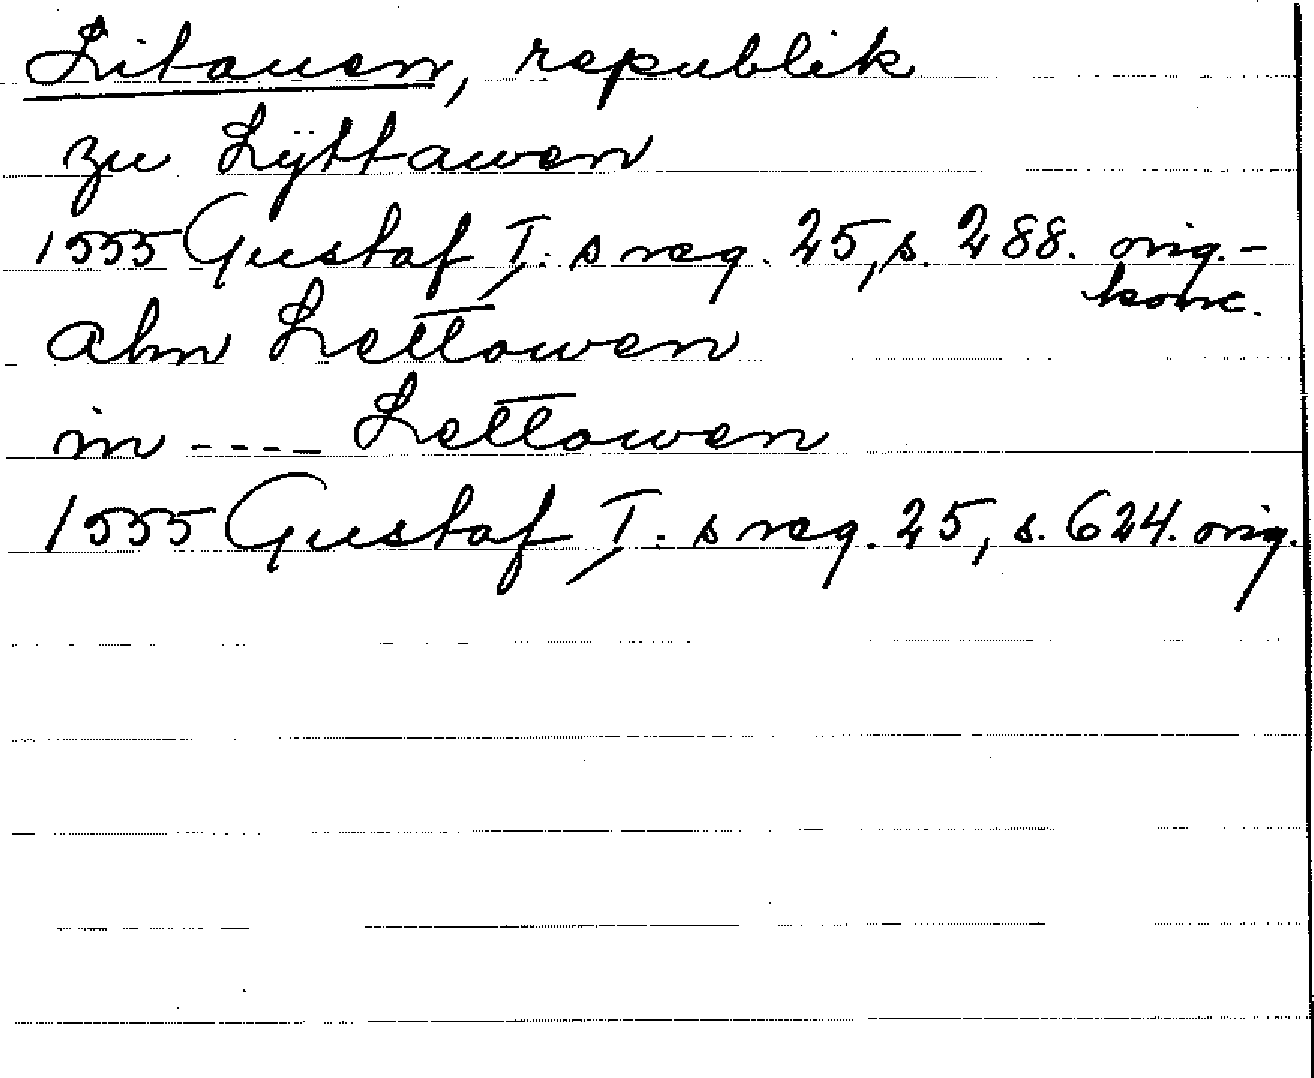 Litauen, republik
zu Lÿttawen
1555 Gustaf I.s reg. 25, s. 288. orig.-
konc.
ahn Lettowen
in ---- Lettowen
1555 Gustaf I.s reg. 25, s. 624. orig.